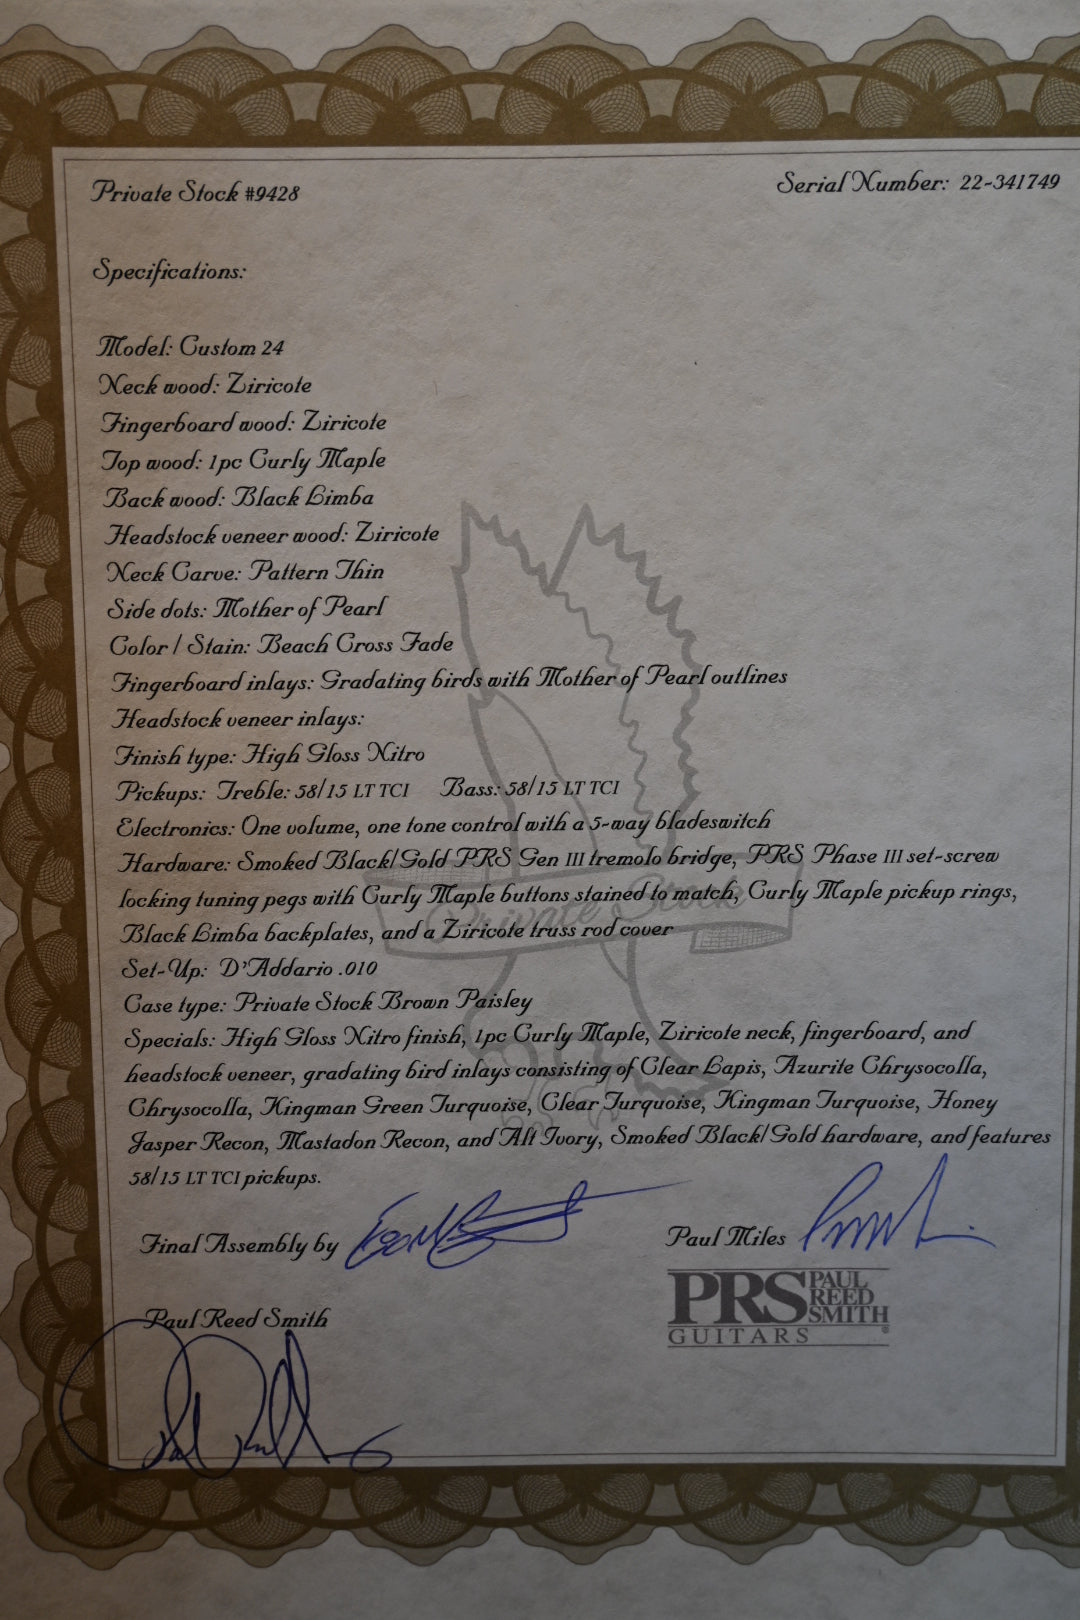 Private Stock #9428
Serial Number: 22-341749
Specifications:
Model: Custom 24
Neck wood: Ziricote
Fingerboard wood: Ziricote
Top wood: 1pc Curly Maple
Back wood: Black Limba
Headstock veneer wood: Ziricote
Neck Carve: Pattern Thin
Side dots: Mother of Pearl
Color / Stain: Beach Cross Fade
Fingerboard inlays: Gradating birds with Mother of Pearl outlines
Headstock veneer inlays:
Finish type: High Gloss Nitro
Pickups: Treble: 58/15 LT TCI Bass: 58/15 LT TCI
Electronics: One volume, one tone control with a 5-way bladeswitch
Hardware: Smoked Black/Gold PRS Gen III tremolo bridge, PRS Phase III set-screw
locking tuning pegs with Curly Maple buttons stained to match, Curly Maple pickup rings,
Private Stock
Black Limba backplates, and a Ziricote truss rod cover
Set-Up: D'Addario .010
Case type: Private Stock Brown Paisley
Specials: High Gloss Nitro finish, 1pc Curly Maple, Ziricote neck, fingerboard, and
headstock veneer, gradating bird inlays consisting of Clear Lapis, Azurite Chrysocolla,
Chrysocolla, Kingman Green Turquoise, Clear Turquoise, Kingman Turquoise, Honey
Jasper Recon, Mastadon Recon, and Alt Ivory, Smoked Black/Gold hardware, and features
58/15 LT TCI pickups.
Final Assembly by
Paul Miles
PRS PAUL REED SMITH
GUITARS
Paul Reed Smith